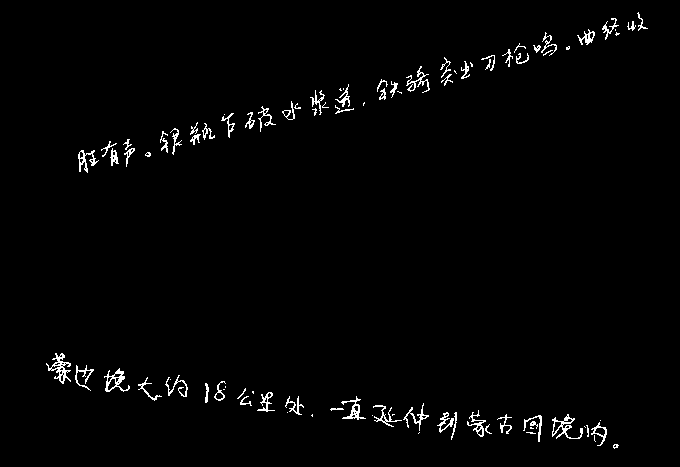 胜有声。银瓶乍破水浆迸，铁骑突出刀枪鸣。曲终收
蒙边境大约18公里处，一直延伸到蒙古国境内。